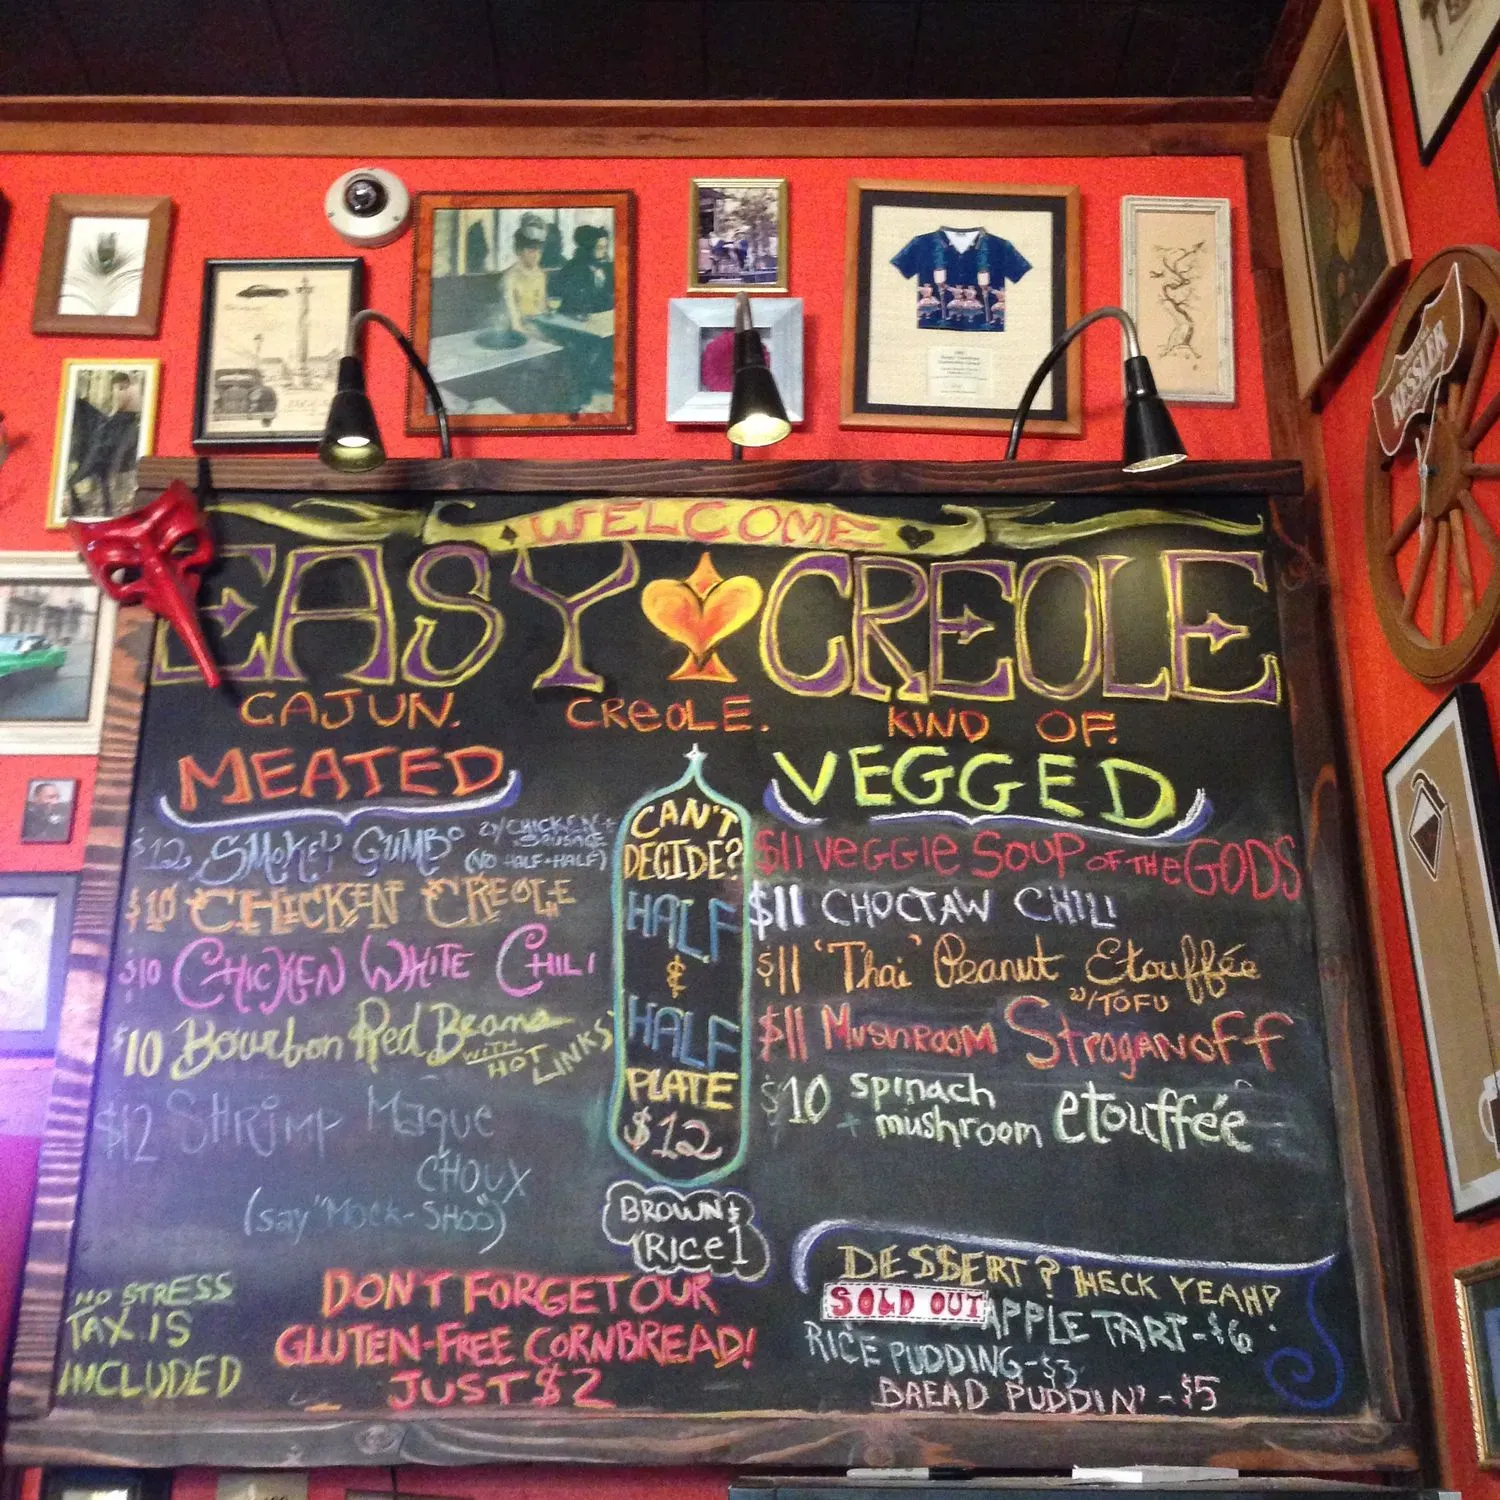 WELCOME
EASY CREOLE
CAJUN. CREOLE. KIND OF.
MEATED
$12 SMOKEY GUMBO W/CHICKEN + SAUSAGE
(NO HALF+HALF)
$10 CHICKEN CREOLE
$10 CHICKEN WHITE CHILI
$10 Bourbon Red Beans
WITH HOT LINKS
$12 SHRIMP Maque
CHOUX
(say "MOCK-SHOO")
CAN'T
DECIDE?
HALF
&
HALF
PLATE
$12
BROWN
RICE 1
VEGGED
$11 VEGGIE SOUP OF THE GODS
$11 CHOCTAW CHILI
$11 'Thai' Peanut Etouffée
W/TOFU
$11 MUSHROOM STROGANOFF
$10 spinach + mushroom etouffée
NO STRESS
TAX IS
INCLUDED
DON'T FORGET OUR
GLUTEN-FREE CORNBREAD!
JUST $2
DESSERT? HECK YEAH!
SOLD OUT APPLE TART-$6
RICE PUDDING-$3
BREAD PUDDIN'-$5
KESSLER